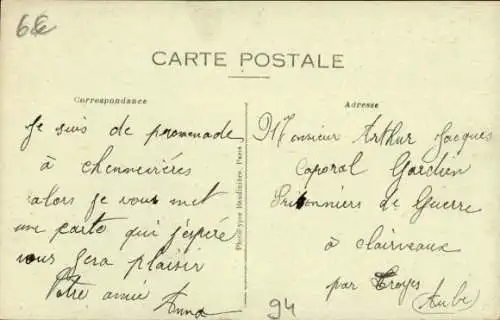 6€
CARTE POSTALE
Correspondance
Adresse
Je suis de promenade
à chennevières
alors je vous met
une carte qui j'espère
vous fera plaisir
Votre amie Anna
Phototypes Baudinière, Paris
Monsieur Arthur Jacques
Caporal Gardien
Prisonniers de Guerre
à Clairveaux
par Troyes
(Aube)
94